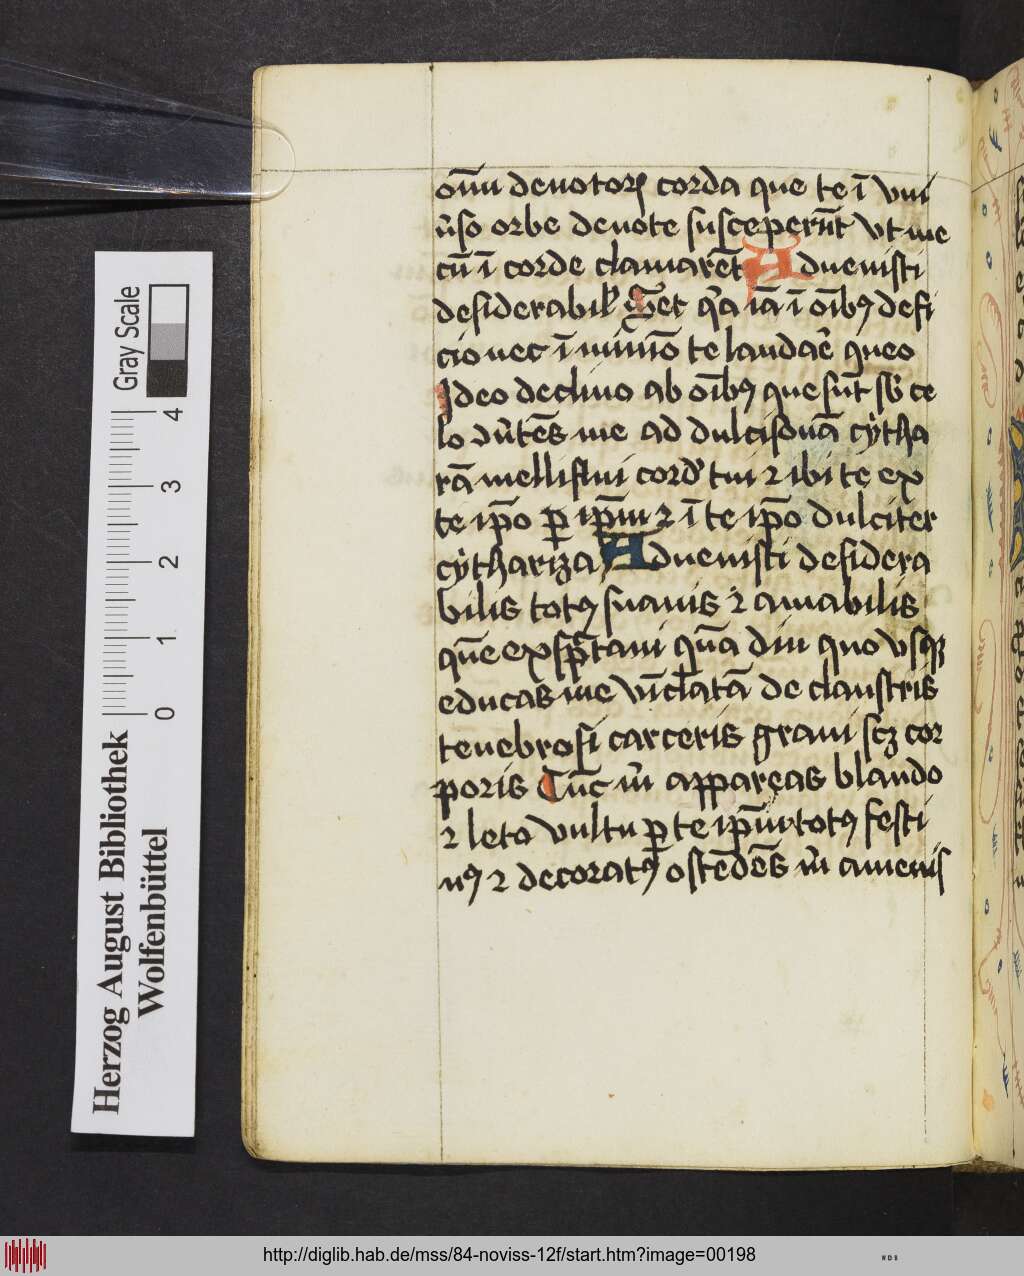 om̄u deuotoꝝ corda que te ī vni
u̓so orbe deuote susceper̄ut vt me
cū ī corde clamarēt Aduenisti
desiderabil̓ Set q̓a iā ī oīb⁹ defi
cio nec ī mīmō te laudar̄e queo
Ideo declino ab oīb⁹ que sūt sb̓ ce
lo v̓tēs me ad dulcisonā cytha
rā melliflui cord̓ tui ⁊ ibi te ex
te ip̄o ꝑ ip̄m ⁊ ī te ip̄o dulciter
cythariza Aduenisti desidera
bilis tot⁹ suauis ⁊ amabilis
quē exsp̄taui q̓ua diu quo vsqꝫ
educas me vīclatā de claustris
tenebrosi carceris graui scꝫ cor
poris Tūc m̓ appareas blando
⁊ leto vultu ꝑ te ip̄m tot⁹ festi
u⁹ ⁊ decorat⁹ ostēdēs m̓ amenis
Gray Scale
4
3
2
1
0
Herzog August Bibliothek
Wolfenbüttel
http://diglib.hab.de/mss/84-noviss-12f/start.htm?image=00198